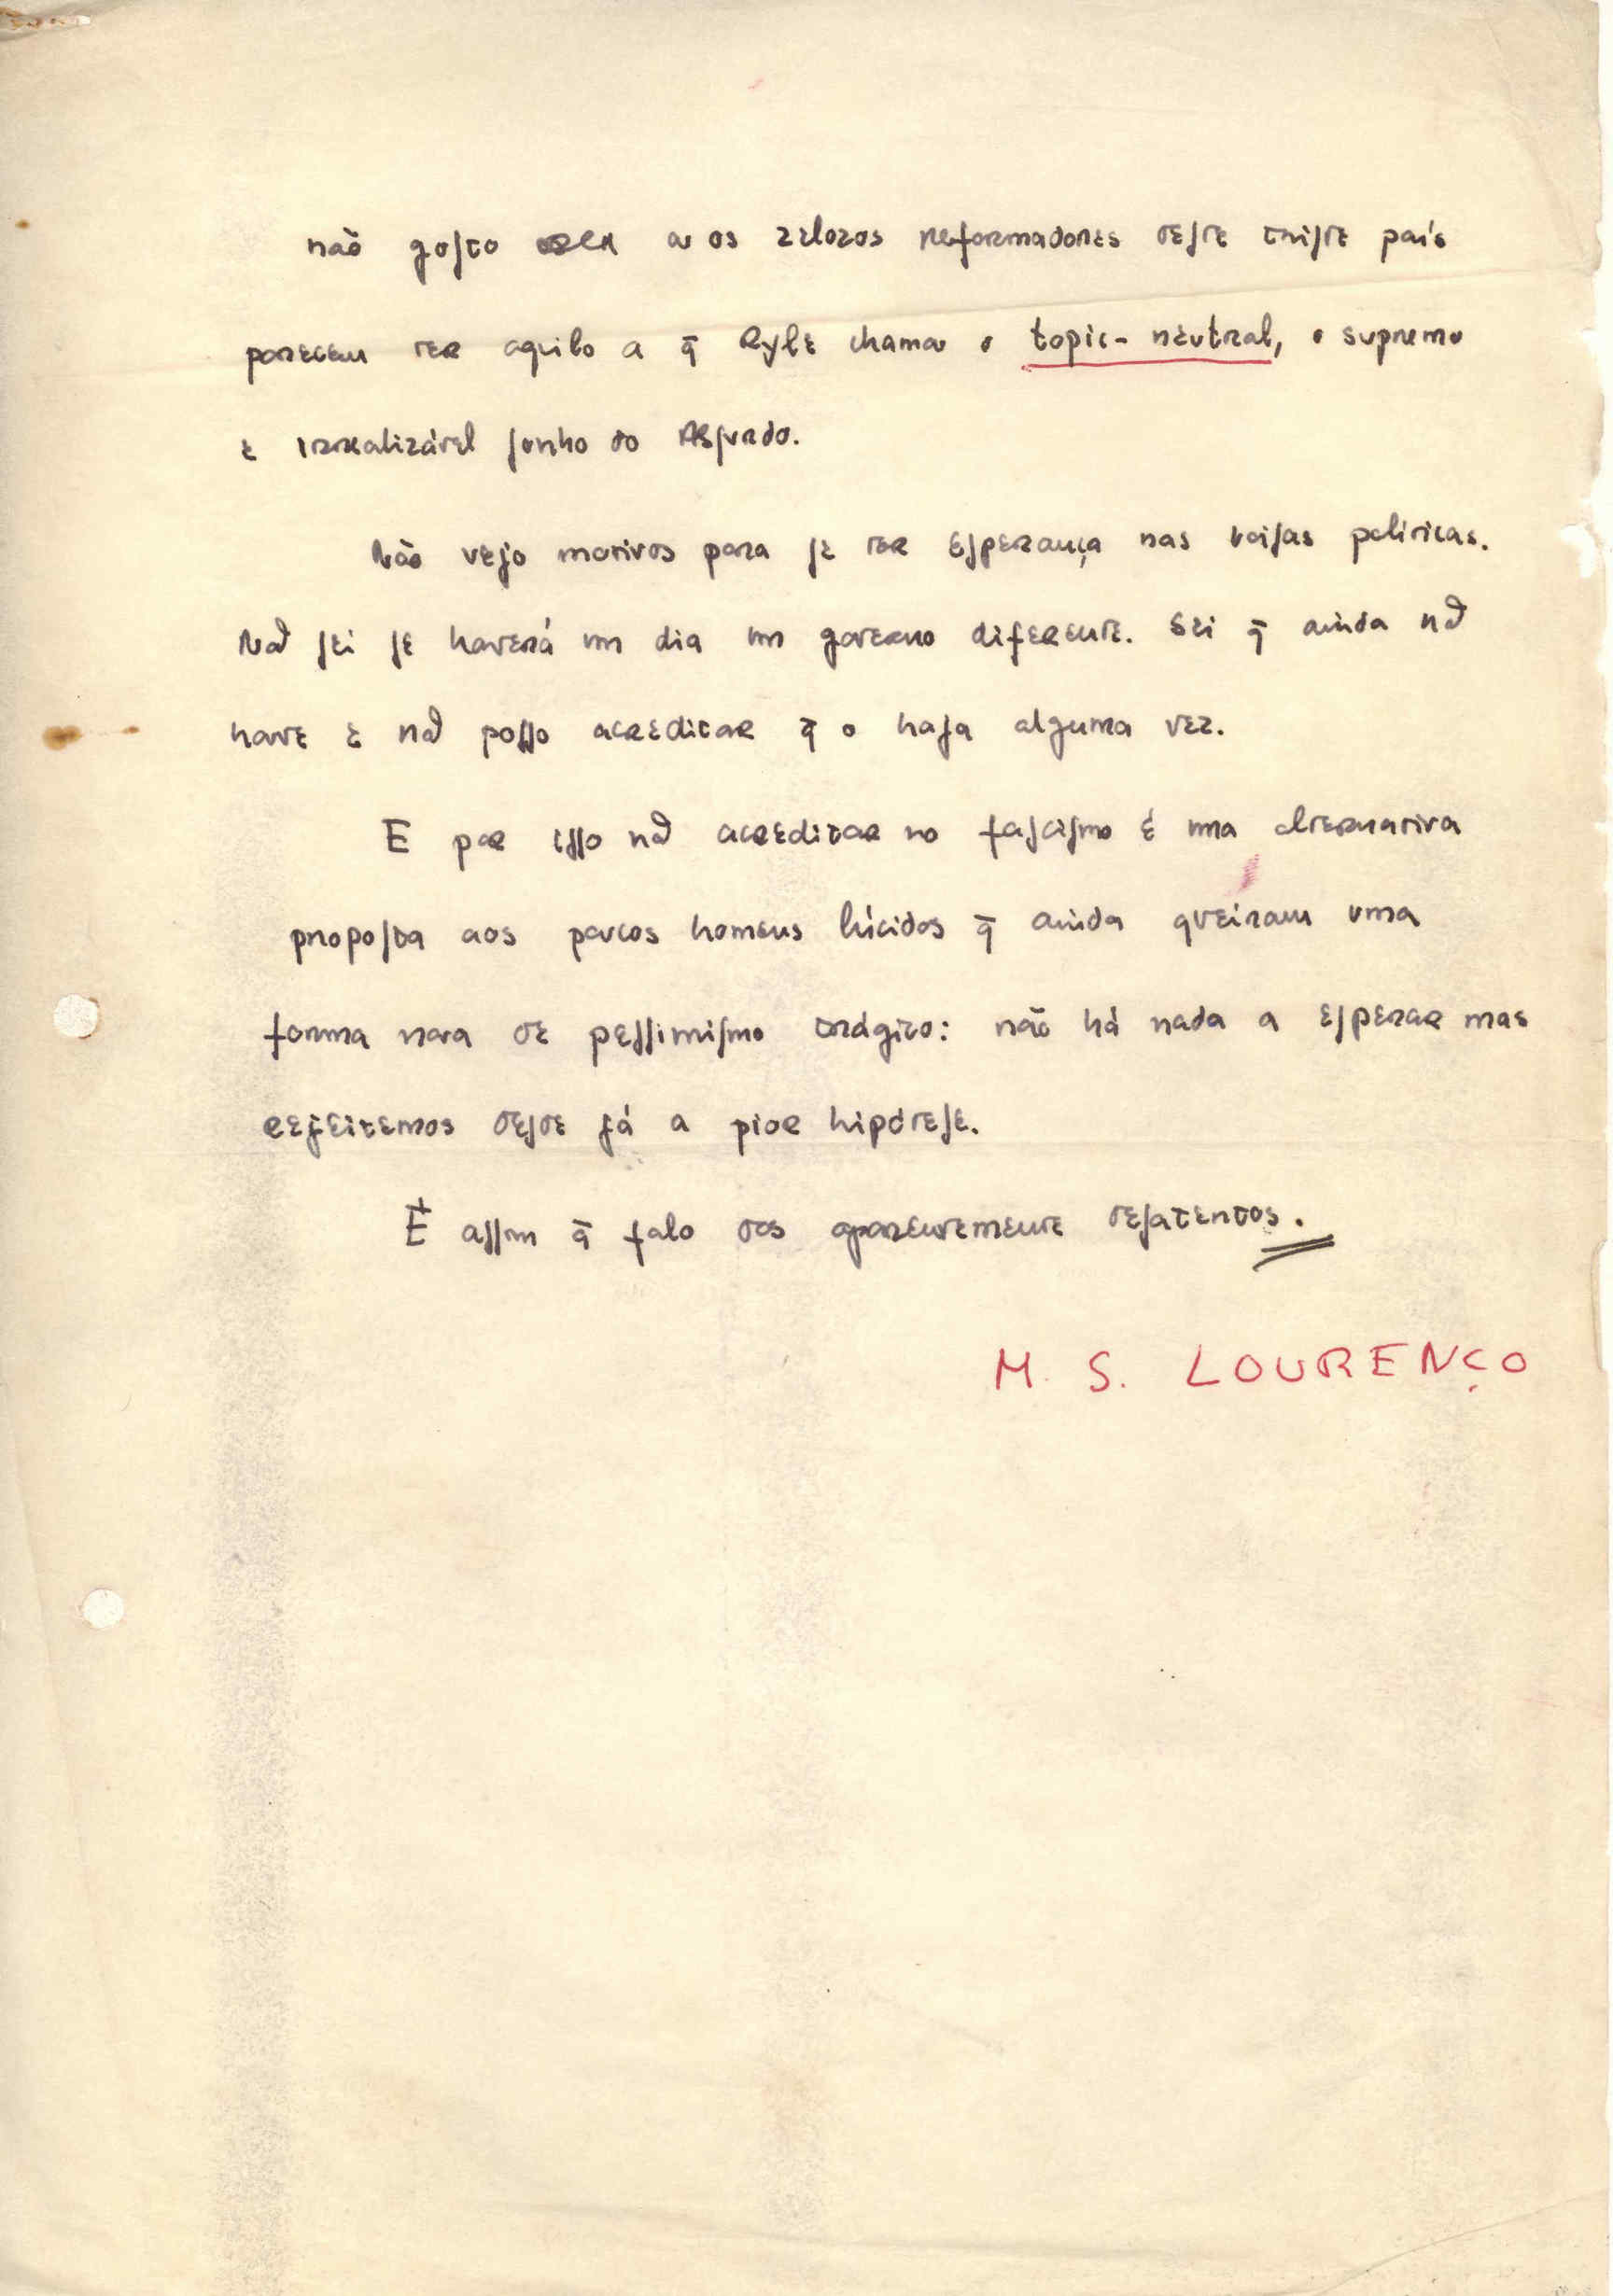 não gosto a os zelozos reformadores deste triste país
parecem ter aquilo a q̄ Ryle chama o topic-neutral, o supremo
e irrealizável sonho do Absurdo.
Não vejo motivos para se ter esperança nas coisas políticas.
Naõ sei se haverá um dia um governo diferente. Sei q̄ ainda naõ
houve e naõ posso acreditar q̄ o haja alguma vez.
E por isso naõ acreditar no fascismo é uma alternativa
proposta aos poucos homens lúcidos q̄ ainda queiram uma
forma nova de pessimismo trágico: não há nada a esperar mas
rejeitemos desde já a pior hipótese.
É assim q̄ falo dos aparentemente desatentos.
M. S. LOURENÇO